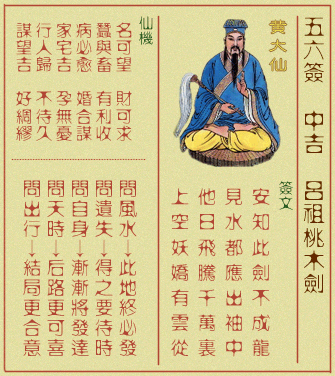 五六簽 中吉 呂祖桃木劍
黄大仙
簽文
安知此劍不成龍
見水都應出袖中
他日飛騰千萬裏
上空妖嬌有雲從
仙機
名可望 財可求
蠶與畜 有利收
病必愈 婚合謀
家宅吉 孕無憂
行人歸 不待久
謀望吉 好綢繆
問風水→此地終必發
問遺失→得之要待時
問自身→漸漸將發達
問天時→后路更可喜
問出行→結局更合意